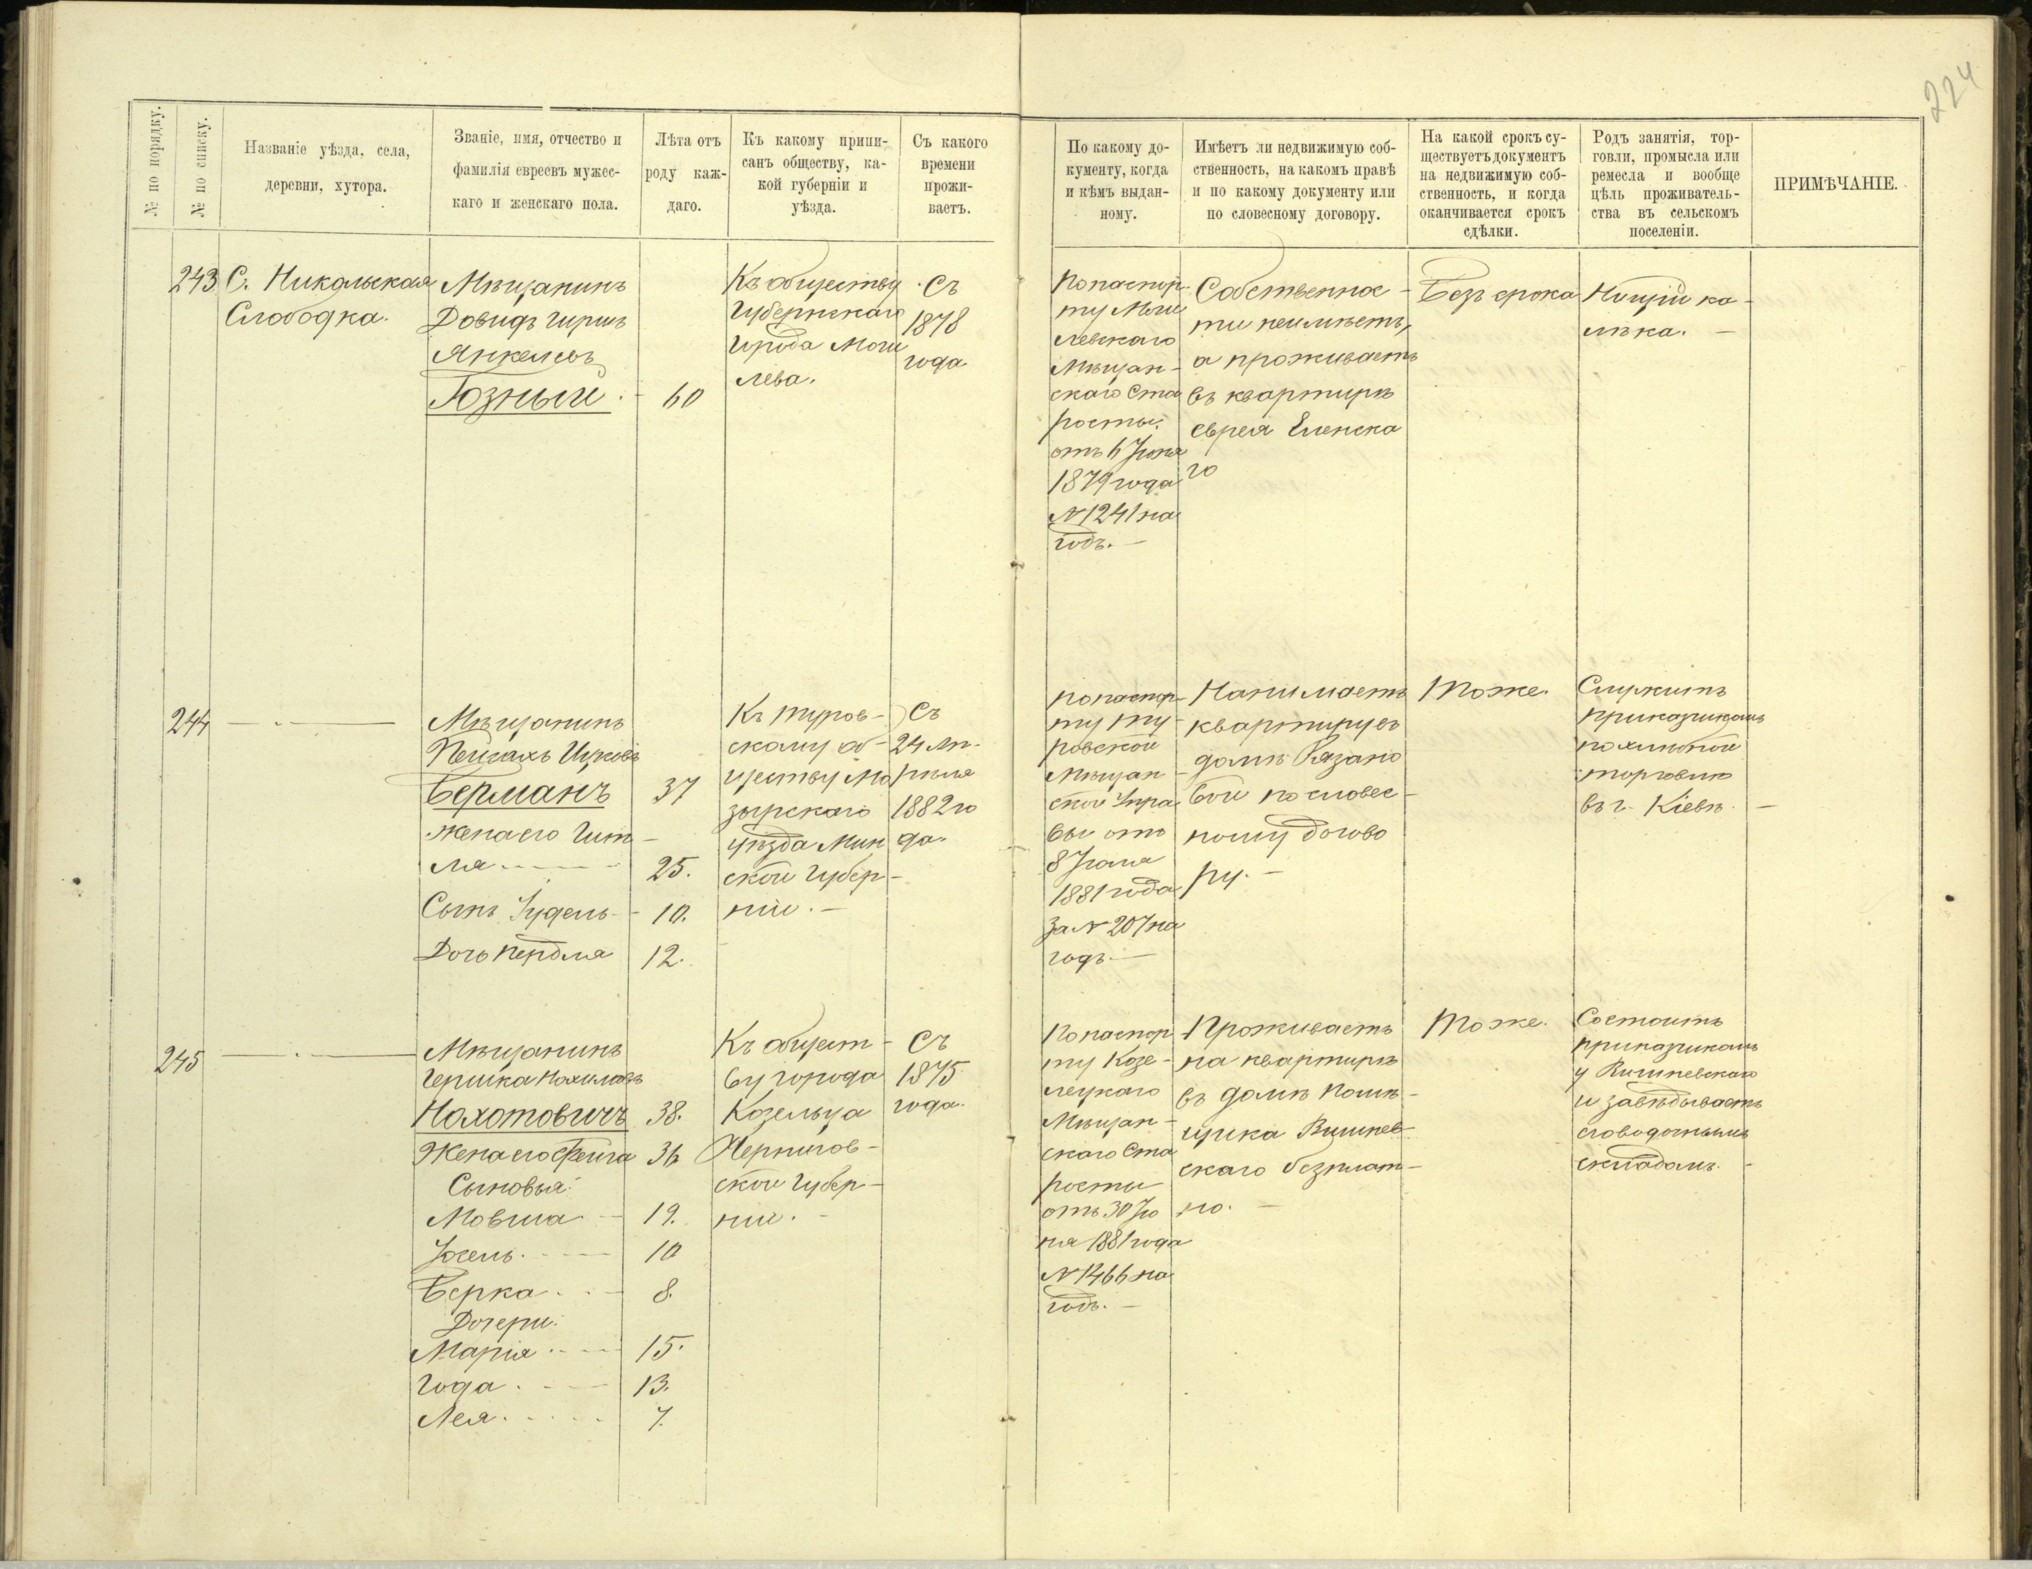 224
№ по порядку.
№ по списку.
Названіе уѣзда, села,
деревни, хутора.
Званіе, имя, отчество и
фамилія евреевъ мужес-
каго и женскаго пола.
Лѣта отъ
роду каж-
даго.
Къ какому припи-
санъ обществу, ка-
кой губерніи и
уѣзда.
Съ какого
времени
прожи-
ваетъ.
По какому до-
кументу, когда
и кѣмъ выдан-
ному.
Имѣетъ ли недвижимую соб-
ственность, на какомъ правѣ
и по какому документу или
по словесному договору.
На какой срокъ су-
ществуетъ документъ
на недвижимую соб-
ственность, и когда
оканчивается срокъ
сдѣлки.
Родъ занятія, тор-
говли, промысла или
ремесла и вообще
цѣль проживатель-
ства въ сельскомъ
поселеніи.
ПРИМѢЧАНІЕ.
243
С. Никольская
Слободка.
Мѣщанинъ
Довидъ Гиршъ
Янкелевъ
Гозный. - 60
Къ обществу
Губернскаго
города Моги
лева.
Съ
1878
года
По паспор-
ту Моги
левскаго
Мѣщан-
скаго Ста
росты.
отъ 6 Іюня
1879 года
№ 1241 на
годъ. -
Собственнос-
ти неимѣетъ,
а проживаетъ
въ квартирѣ
еврея Еленска
го
Безъ срока
Нищій ка-
лѣка. -
244
Мѣщанинъ
Пейсахъ Ицковъ
Берманъ 37
Жена его Гит-
ля - 25.
Сынъ Іудель - 10.
Дочь Перля 12.
Къ Туров-
скому об-
ществу Мо
зырскаго
уѣзда Мин
ской Губер-
ніи. -
Съ
24 Ап-
рѣля
1882 го
да.
По паспор-
ту Ту-
ровской
Мѣщан-
ской Упра
вы отъ
8 Іюля
1881 года
за № 207 на
годъ. -
Нанимаетъ
квартиру въ
домѣ Рязано
вой по словес-
ному догово
ру. -
Тоже.
Служитъ
приказчикомъ
по хлѣбной
торговлѣ
въ г. Кіевѣ. -
245
Мѣщанинъ
Гершка Нохимовъ
Нохотовичъ 38.
Жена его Фейга 36
Сыновья:
Мовша - 19.
Іосель. - 10
Берка. - 8.
Дочери:
Марія. - 15.
Года. - 13.
Лея. . . . . 7.
Къ общест-
ву города
Козельца
Чернигов-
ской Губер-
ніи. -
Съ
1875
года.
По паспор
ту Козе-
лецкаго
Мѣщан-
скаго Ста
росты
отъ 30 Ію
ня 1881 года
№ 1466 на
годъ. -
Проживаетъ
на квартирѣ
въ домѣ Помѣ-
щика Вишнев-
скаго безплат-
но. -
Тоже.
Состоитъ
приказчикомъ
у Вишневскаго
и завѣдываетъ
складомъ. -